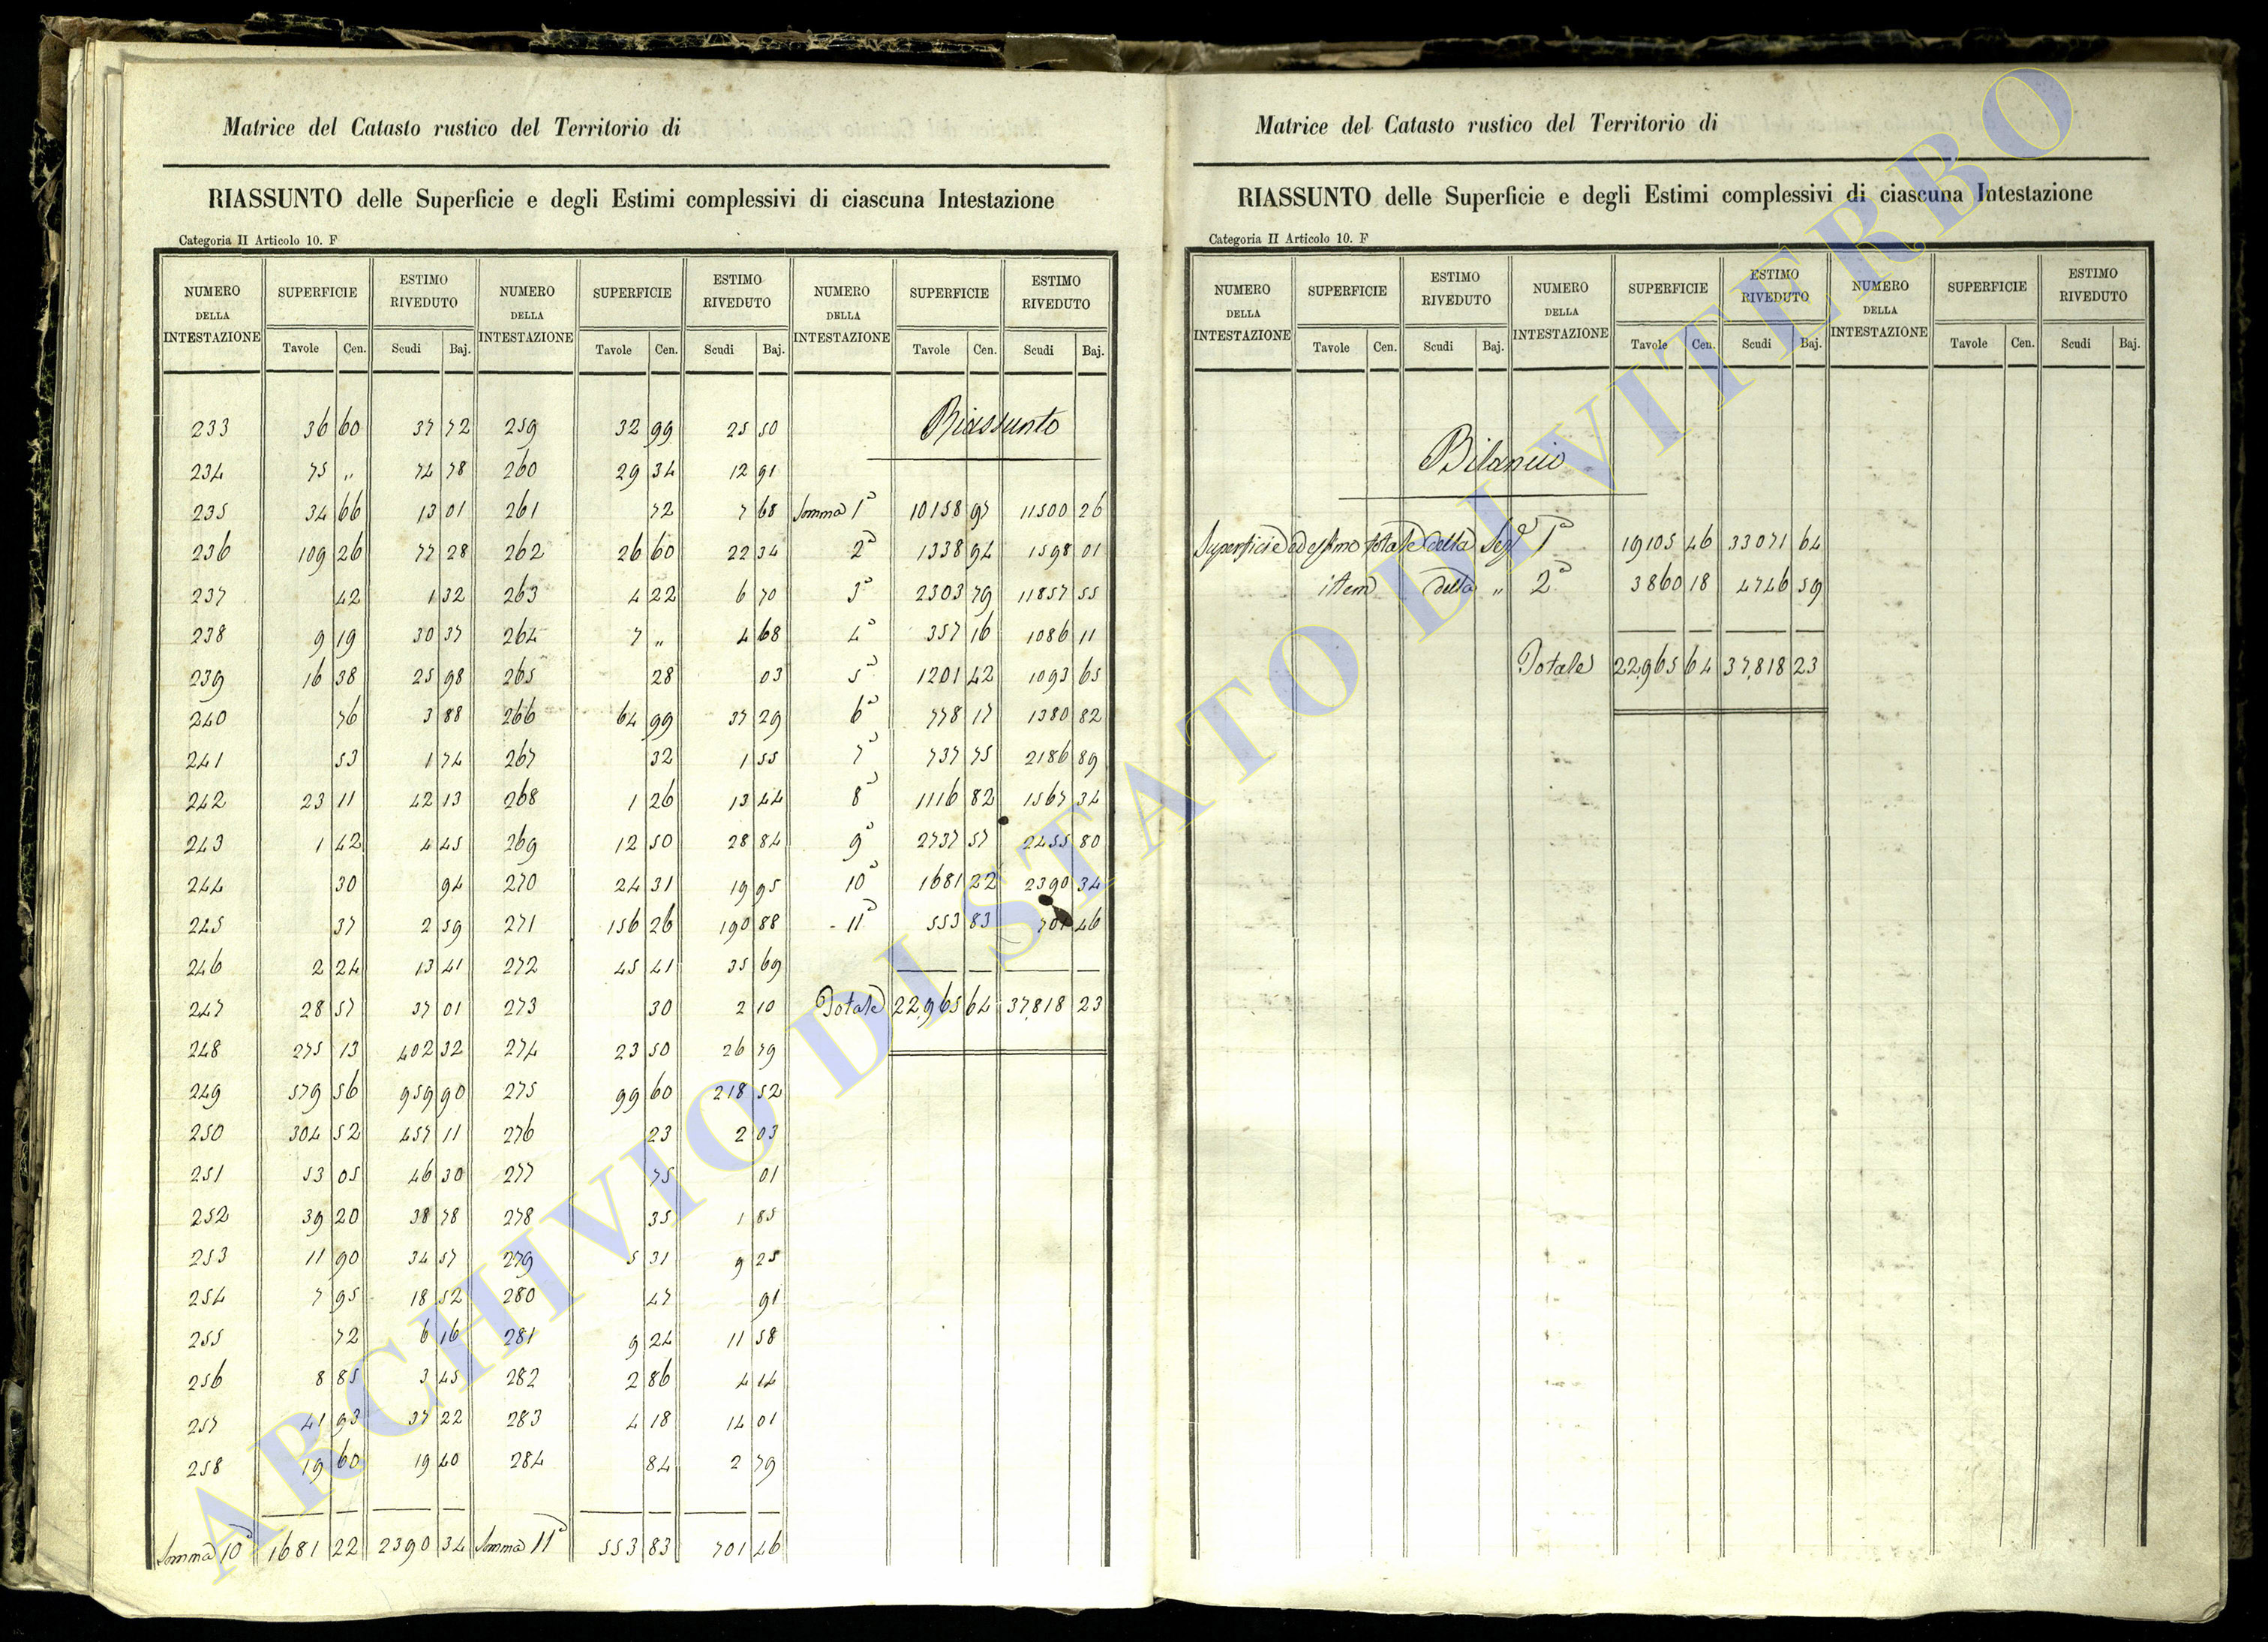 Matrice del Catasto rustico del Territorio di
RIASSUNTO delle Superficie e degli Estimi complessivi di ciascuna Intestazione
Categoria II Articolo 10. F
NUMERO DELLA INTESTAZIONE SUPERFICIE ESTIMO RIVEDUTO NUMERO DELLA INTESTAZIONE SUPERFICIE ESTIMO RIVEDUTO NUMERO DELLA INTESTAZIONE SUPERFICIE ESTIMO RIVEDUTO
Tavole Cen. Scudi Baj. Tavole Cen. Scudi Baj. Tavole Cen. Scudi Baj.
233 36 60 37 72 259 32 99 25 50 Riassunto
234 75 „ 74 78 260 29 34 12 91
235 34 66 13 01 261 72 7 68 Somma 1ª 10158 97 11500 26
236 109 26 77 28 262 26 60 22 34 2ª 1338 94 1598 01
237 42 1 32 263 4 22 6 70 3ª 2303 79 11857 55
238 9 19 30 37 264 7 „ 4 68 4ª 357 16 1086 11
239 16 38 25 98 265 28 03 5ª 1201 42 1093 65
240 76 3 88 266 64 99 37 29 6ª 778 17 1380 82
241 53 1 74 267 32 1 55 7ª 737 75 2186 89
242 23 11 42 13 268 1 26 13 44 8ª 1116 82 1567 34
243 1 42 4 45 269 12 50 28 84 9ª 2737 57 2455 80
244 30 94 270 24 31 19 95 10ª 1681 22 2390 34
245 37 2 59 271 156 26 190 88 11ª 553 83 701 46
246 2 24 13 41 272 45 41 35 69
247 28 57 37 01 273 30 2 10 Totale 22,965 64 37,818 23
248 275 13 402 32 274 23 50 26 79
249 579 56 959 90 275 99 60 218 52
250 304 52 457 11 276 23 2 03
251 53 05 46 30 277 75 01
252 39 20 38 78 278 35 1 85
253 11 90 34 57 279 5 31 9 25
254 7 95 18 52 280 47 91
255 72 6 16 281 9 24 11 58
256 8 85 3 45 282 2 86 4 14
257 41 93 37 22 283 4 18 14 01
258 19 60 19 40 284 84 2 79
Somma 10ª 1681 22 2390 34 Somma 11ª 553 83 701 46
Matrice del Catasto rustico del Territorio di
RIASSUNTO delle Superficie e degli Estimi complessivi di ciascuna Intestazione
Categoria II Articolo 10. F
NUMERO DELLA INTESTAZIONE SUPERFICIE ESTIMO RIVEDUTO NUMERO DELLA INTESTAZIONE SUPERFICIE ESTIMO RIVEDUTO NUMERO DELLA INTESTAZIONE SUPERFICIE ESTIMO RIVEDUTO
Tavole Cen. Scudi Baj. Tavole Cen. Scudi Baj. Tavole Cen. Scudi Baj.
Bilancio
Superficie ed estimo totale della Sezª 1ª 19105 46 33071 64
item della „ 2ª 3860 18 4746 59
Totale 22,965 64 37,818 23
ARCHIVIO DI STATO DI VITERBO